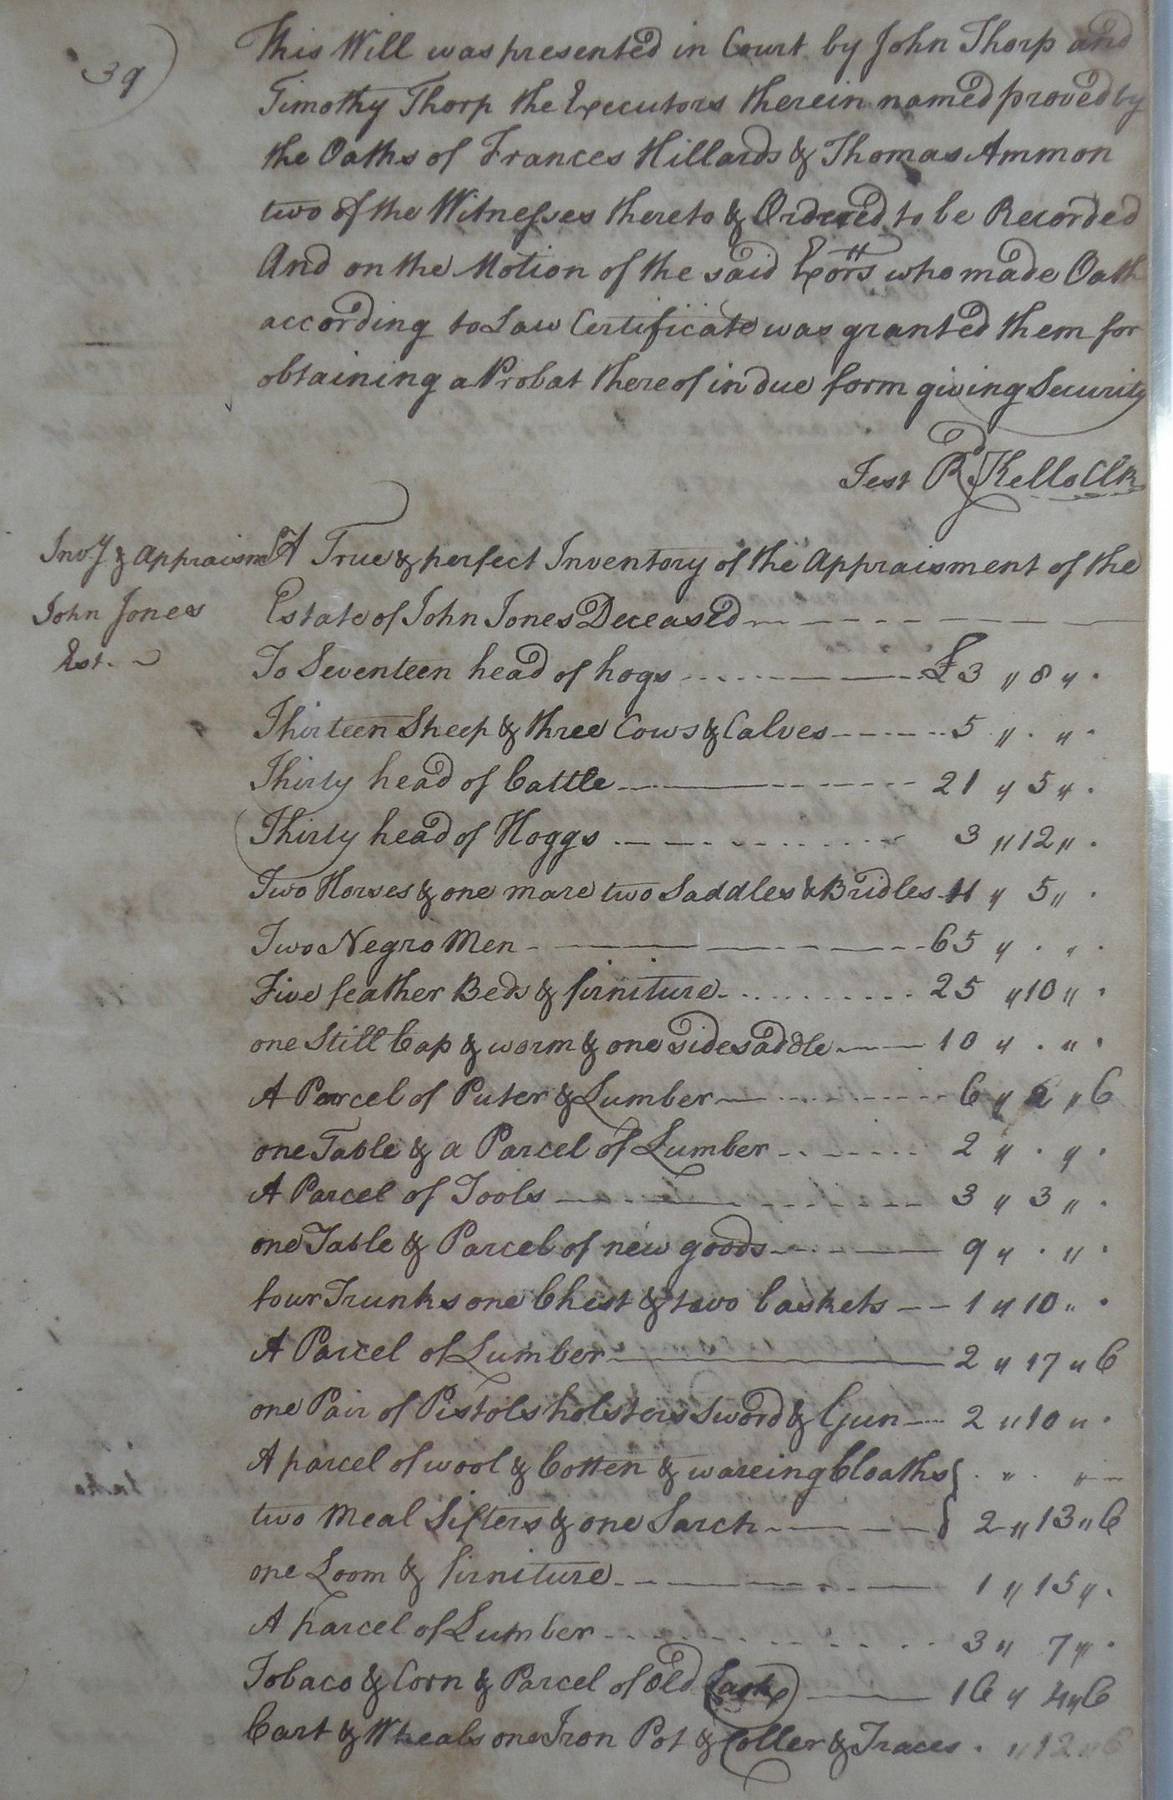 39)
This Will was presented in Court by John Thorp and
Timothy Thorp the Executors therein named proved by
the Oaths of Frances Hillards & Thomas Ammon
two of the Witnesses thereto & Ordered to be Recorded
And on the Motion of the said Exors who made Oath
according to Law Certificate was granted them for
obtaining a Probat thereof in due form giving Security
Test Rd Kello Clk
Invy & Appraismt
John Jones
Est.
A True & perfect Inventory of the Appraisment of the
Estate of John Jones Deceased
To Seventeen head of hogs £3 " 8 " .
Thirteen Sheep & three Cows & Calves 5 " . " .
Thirty head of Cattle 21 " 5 " .
Thirty head of Hoggs 3 " 12 " .
Two Horses & one mare two Saddles & Bridles 11 " 5 " .
Two Negro Men 65 " . " .
Five feather Beds & firniture 25 " 10 " .
one Still Cap & worm & one side saddle 10 " . " .
A Parcel of Puter & Lumber 6 " 2 " 6
one Table & a Parcel of Lumber 2 " . " .
A Parcel of Tools 3 " 3 " .
one Table & Parcel of new goods 9 " . " .
four Trunks one Chest & two baskets 1 " 10 " .
A Parcel of Lumber 2 " 17 " 6
one Pair of Pistols holsters sword & Gun 2 " 10 " .
A parcel of wool & Cotten & wareing Cloaths } . " . "
two Meal Sifters & one Sarch } 2 " 13 " 6
one Loom & firniture 1 " 15 " .
A parcel of Lumber 3 " 7 " .
Tobaco & Corn & Parcel of old Cask 16 " 4 " 6
Cart & Wheals one Iron Pot & Coller & Traces . " 12 " 6